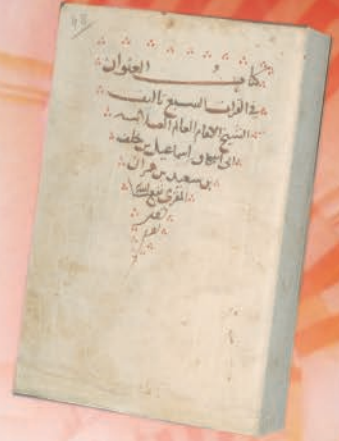 48
كتاب العنوان
في القراات السبع تاليف
الشيخ الامام العالم العلامه
ابى الطاهر اسماعيل بن خلف
بن سعيد بن عمران
المقرى نفع الله